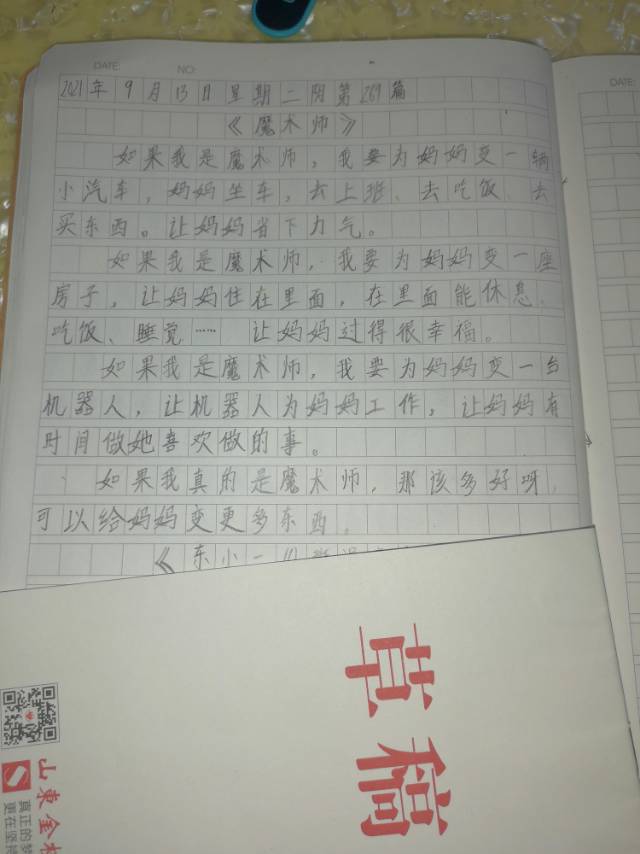 DATE: NO:
DATE:
2021年9月13日星期二阴第269篇
《魔术师》
如果我是魔术师，我要为妈妈变一辆
小汽车，妈妈坐车，去上班、去吃饭、去
买东西。让妈妈省下力气。
如果我是魔术师，我要为妈妈变一座
房子，让妈妈住在里面，在里面能休息、
吃饭、睡觉……让妈妈过得很幸福。
如果我是魔术师，我要为妈妈变一台
机器人，让机器人为妈妈工作，让妈妈有
时间做她喜欢做的事。
如果我真的是魔术师，那该多好呀，
可以给妈妈变更多东西。
《东小一
草稿
山東金
真正的梦
更在坚持